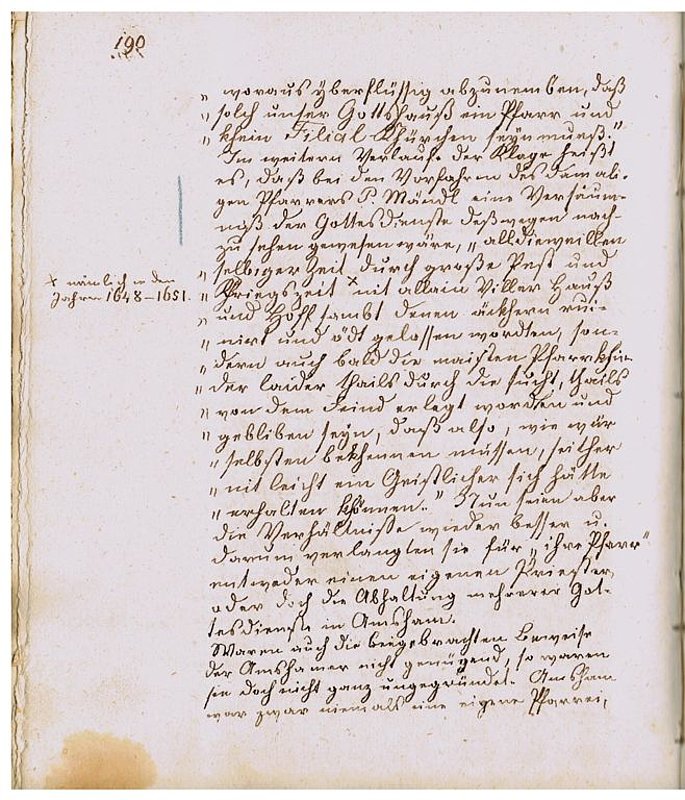 190
„ woraus yberflüssig abzunemben, daß
„ solch unser Gottshauß ein Pfarr und
„ khein Filial Khürchen seyn mueß."
Im weitern Verlaufe der Klage heißt
es, daß bei den Vorfahren des damali-
gen Pfarrers P. Mändl eine Versäum-
niß der Gottesdienste deßwegen nach-
zusehen gewesen wäre, „alldieweillen
„ selbiger Zeit durch große Pest und
„ Kriegszeit × nit allain Viller Hauß
„ und Hoff sambt denen äckhern rui-
„ nirt und ödt gelassen wordten, son-
„ dern auch bald die maisten Pfarrkhin-
„ der laider thails durch die sucht, thails
„ von dem Feind erlegt worden und
„ gebliben seyn, daß also, wie wür
„ selbsten bekhennen müssen, seither
„ nit leicht ein Geistlicher sich hätte
„ erhalten khönnen." Nun seien aber
die Verhältnisse wieder besser u.
darum verlangten sie für „ihre Pfarr"
entweder einen eigenen Priester,
oder doch die Abhaltung mehrerer Got-
tesdienste in Amsham.
Waren auch die beigebrachten Beweise
der Amshamer nicht genügend, so waren
sie doch nicht ganz ungegründet. Amsham
war zwar niemals eine eigene Pfarrei,
× nämlich in den
Jahren 1648–1651.